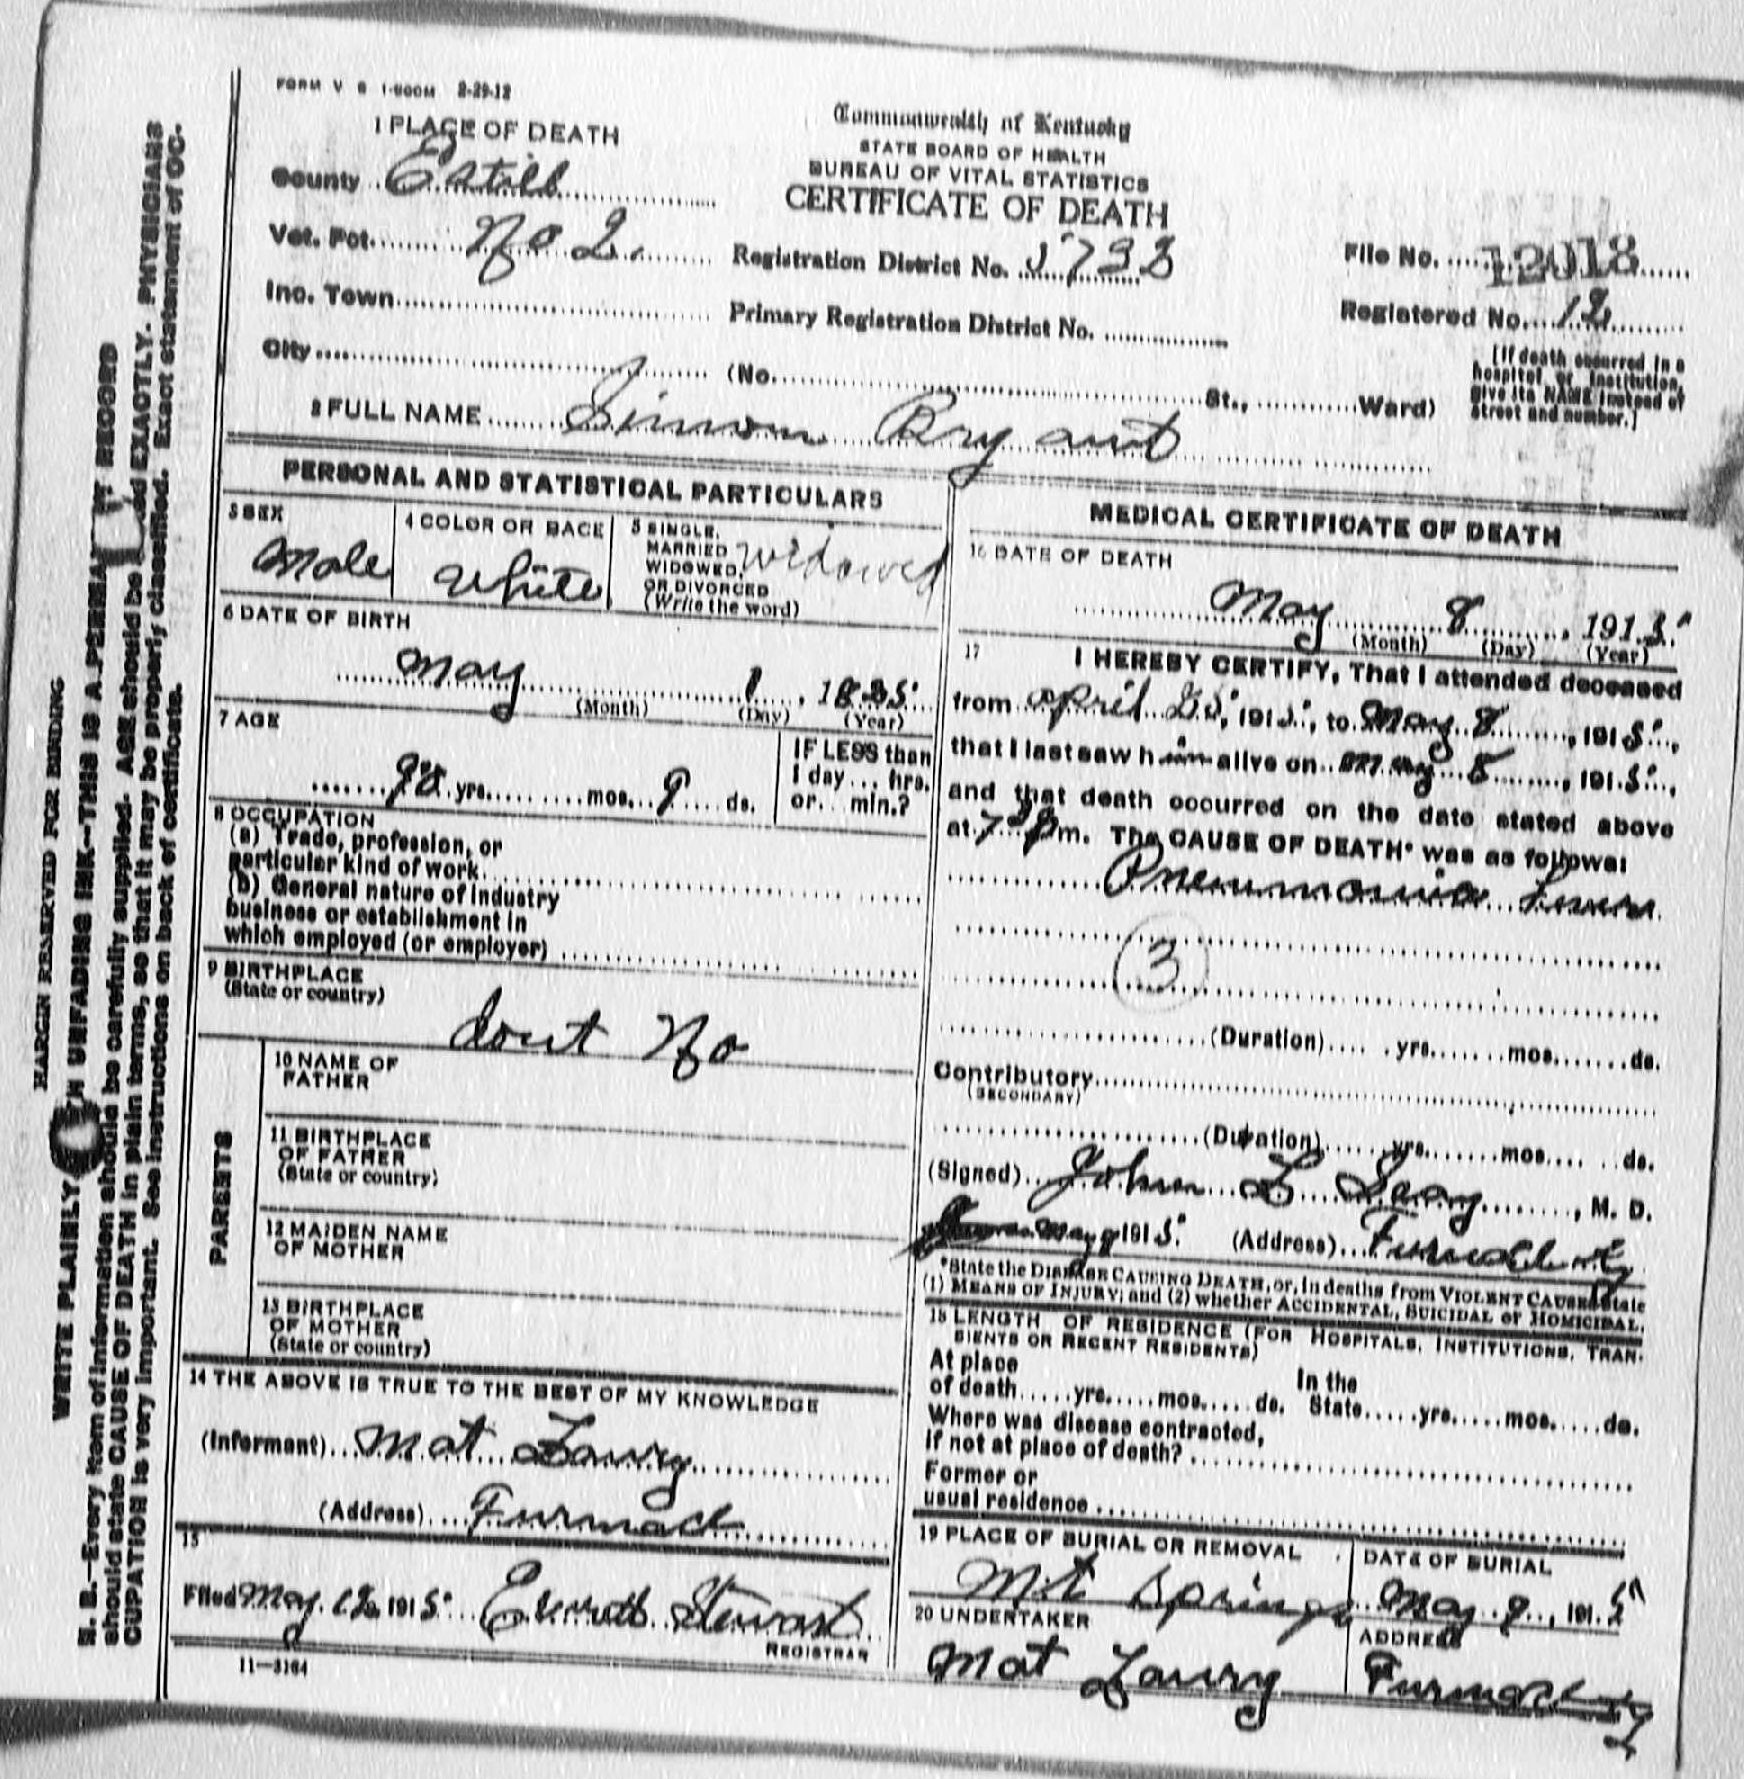 FORM V S 1-500M 2-29-12
1 PLACE OF DEATH
County Estill
Vot. Pct. No 2.
Inc. Town
City
Commonwealth of Kentucky
STATE BOARD OF HEALTH
BUREAU OF VITAL STATISTICS
CERTIFICATE OF DEATH
Registration District No.
Primary Registration District No.
(No. St., Ward)
File No. 12018
Registered No. 12
[If death occurred in a
hospital or institution,
give its NAME instead of
street and number.]
2 FULL NAME Simon Bryant
PERSONAL AND STATISTICAL PARTICULARS
3 SEX
Male
4 COLOR OR RACE
White
5 SINGLE,
MARRIED
WIDOWED,
OR DIVORCED
(Write the word)
Widowed
6 DATE OF BIRTH
May 1, 18
(Month) (Day) (Year)
7 AGE
yrs. mos. 9 ds.
IF LESS than
1 day ... hrs.
or ... min.?
8 OCCUPATION
(a) Trade, profession, or
particular kind of work
(b) General nature of industry
business or establishment in
which employed (or employer)
9 BIRTHPLACE
(State or country)
dont No
PARENTS
10 NAME OF
FATHER
11 BIRTHPLACE
OF FATHER
(State or country)
12 MAIDEN NAME
OF MOTHER
13 BIRTHPLACE
OF MOTHER
(State or country)
14 THE ABOVE IS TRUE TO THE BEST OF MY KNOWLEDGE
(Informant) Mat Lowry
(Address) Furnace
15
Filed May 12 1915 Everett Stewart
REGISTRAR
11-3184
MEDICAL CERTIFICATE OF DEATH
16 DATE OF DEATH
May 8, 1915
(Month) (Day) (Year)
17 I HEREBY CERTIFY, That I attended deceased
from April 25, 1915, to May 8, 1915,
that I last saw him alive on May 1915,
and that death occurred on the date stated above
at 7 Pm. The CAUSE OF DEATH* was as follows:
Pneumonia
3
(Duration) yrs. mos. ds.
Contributory
(SECONDARY)
(Duration) yrs. mos. ds.
(Signed) John L , M. D.
May 1915 (Address) Furnace Ky
*State the DISEASE CAUSING DEATH, or, in deaths from VIOLENT CAUSES, state
(1) MEANS OF INJURY; and (2) whether ACCIDENTAL, SUICIDAL or HOMICIDAL.
18 LENGTH OF RESIDENCE (FOR HOSPITALS, INSTITUTIONS, TRAN-
SIENTS OR RECENT RESIDENTS)
At place In the
of death yrs. mos. ds. State yrs. mos. ds.
Where was disease contracted,
if not at place of death?
Former or
usual residence
19 PLACE OF BURIAL OR REMOVAL
Mt Springs
DATE OF BURIAL
May 9, 1915
20 UNDERTAKER
Mat Lowry
ADDRESS
Furnace Ky
MARGIN RESERVED FOR BINDING
WRITE PLAINLY UNFADING INK--THIS IS A PERMANENT RECORD
N. B.--Every item of information should be carefully supplied. AGE should be EXACTLY. PHYSICIANS
should state CAUSE OF DEATH in plain terms, so that it may be properly classified. Exact statement of OC-
CUPATION is very important. See instructions on back of certificate.